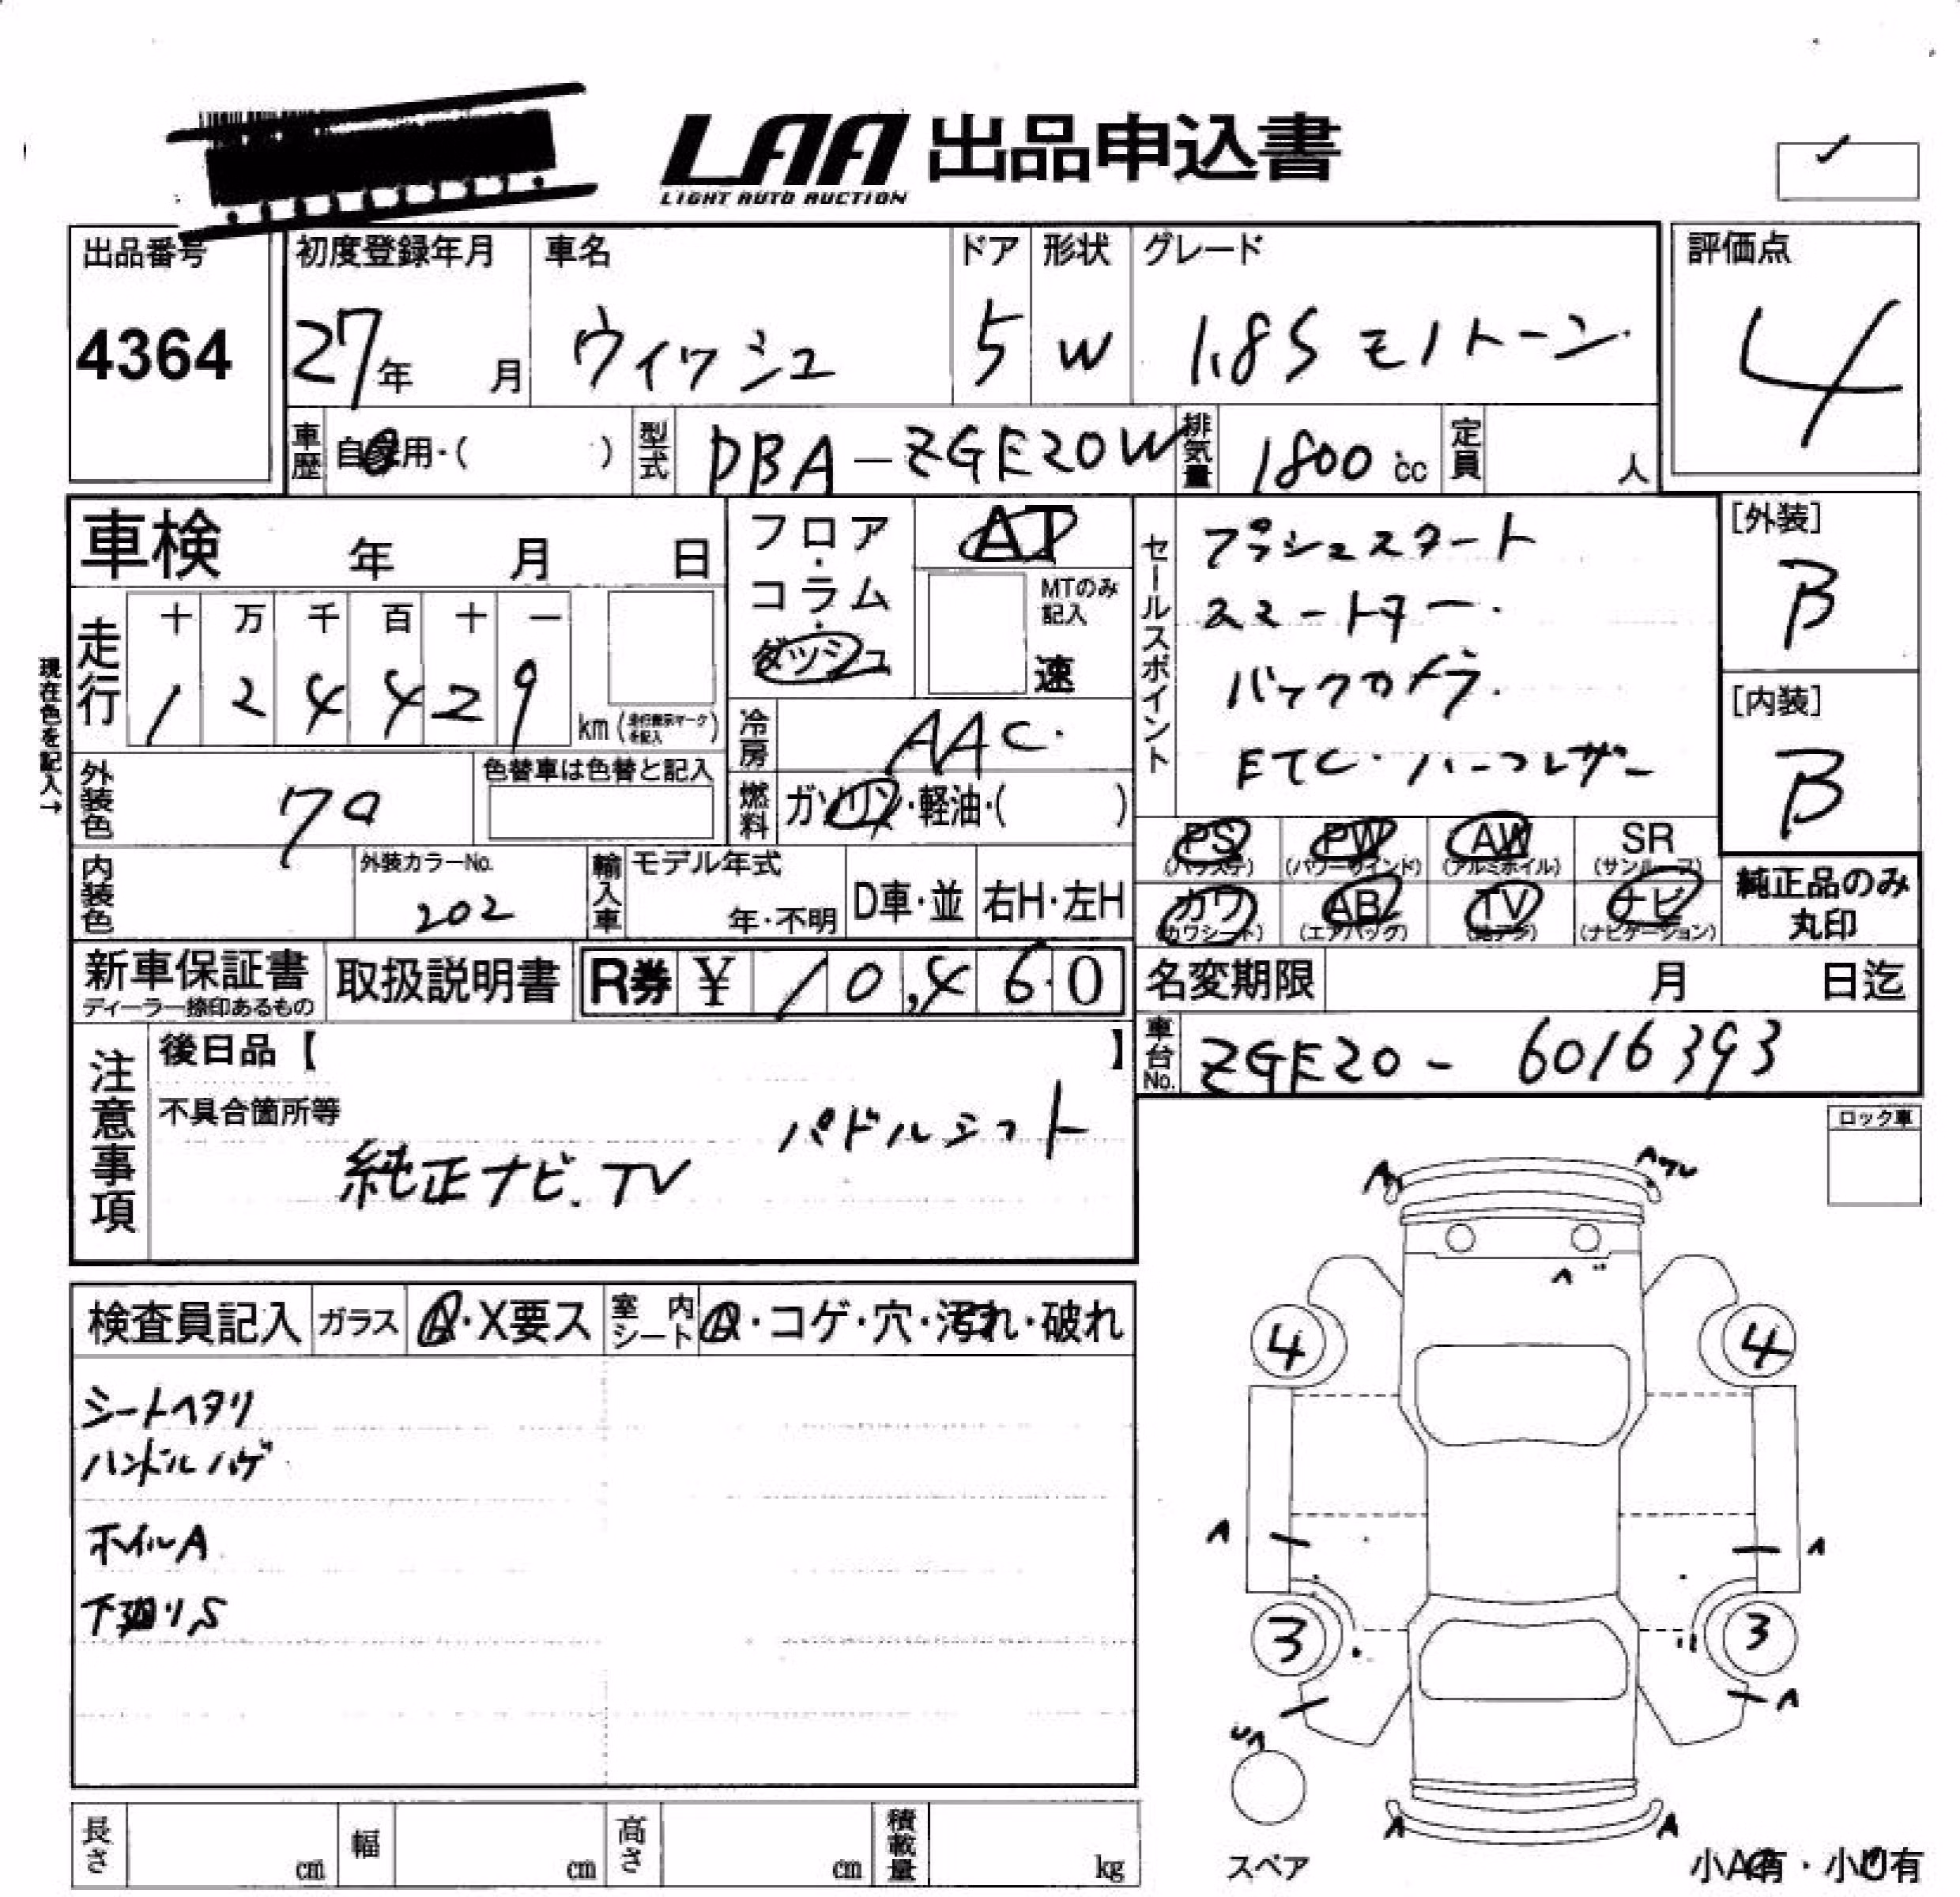 LAA 出品申込書
LIGHT AUTO AUCTION
出品番号 初度登録年月 車名 ドア 形状 グレード 評価点
4364 27年 月 ウィッシュ 5 W 1.8S モノトーン 4
車歴 自家用・( ) 型式 DBA-ZGE20W 排気量 1800 cc 定員 人
車検 年 月 日
フロア・コラム・ダッシュ
AT
MTのみ記入
速
セールスポイント
プッシュスタート
スマートキー.
バックカメラ.
ETC.ハーフレザー
[外装]
B
[内装]
B
現在色を記入→
走行 十 万 千 百 十 一
1 2 4 4 2 9 km (走行表示マークを記入)
冷房 AAC.
外装色 色替車は色替と記入
燃料 ガソリン・軽油・( )
PS PW AW SR
(パワステ) (パワーウインド) (アルミホイル) (サンルーフ)
カワ AB TV ナビ
(カワシート) (エアバッグ) (地デジ) (ナビゲーション)
純正品のみ
丸印
内装色 外装カラーNo. 202 輸入車 モデル年式 年・不明 D車・並 右H・左H
新車保証書 取扱説明書 R券 ¥ 10,460
ディーラー捺印あるもの
名変期限 月 日迄
車台No. ZGE20-6016393
注意事項
後日品【 】
不具合箇所等
パドルシフト
純正ナビ.TV
ロック車
検査員記入 ガラス A・X要ス 室内シート ・コゲ・穴・汚れ・破れ
シートヘタリ
ハンドルハゲ
ホイルA
下廻りS
A Aワレ
4 4
A A
3 3
A
A A
スペア
小A有・小U有
長さ cm 幅 cm 高さ cm 積載量 kg